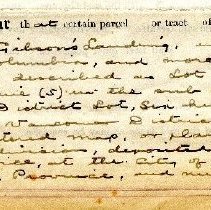 that certain parcel or tract of
Gibson's Landing,
Columbia, and more
described as Lot
(5) in the sub
District Lot, Six hu
District
map, or plan
deposited
at the City of
Province, and